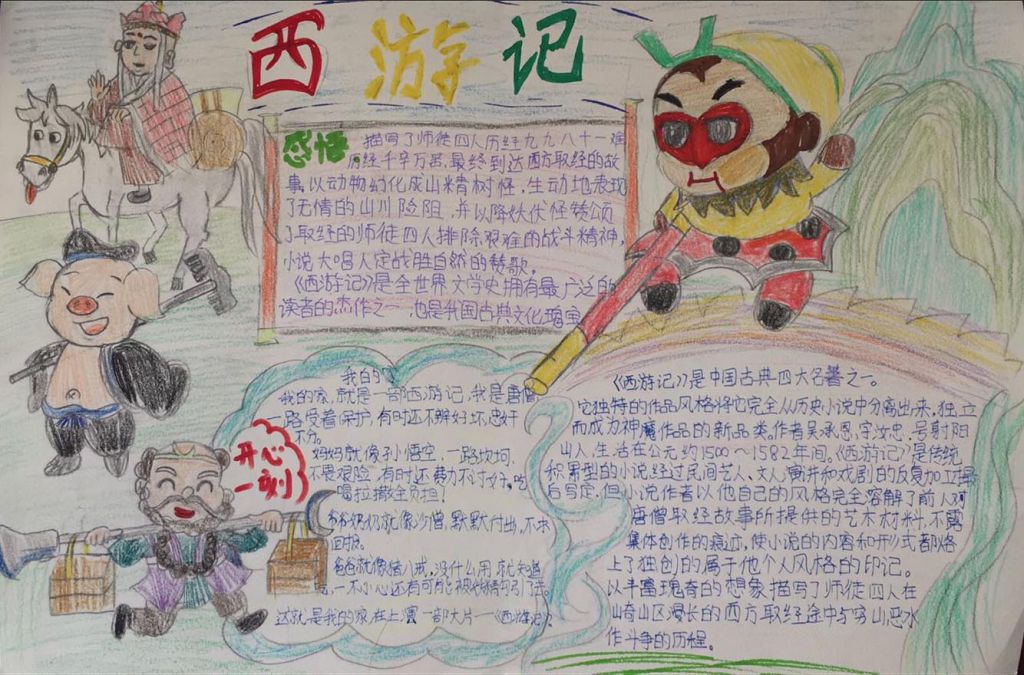 西游记
感悟 描写了师徒四人历经九九八十一难
历经千辛万苦,最终到达西方取经的故
事,以动物幻化成山精树怪,生动地表现
了无情的山川险阻,并以降妖伏怪赞颂
了取经的师徒四人排除艰难的战斗精神,
小说大唱人定战胜自然的赞歌。
《西游记》是全世界文学史拥有最广泛的
读者的杰作之一,也是我国古典文化瑰宝
我的
我的家,就是一部西游记,我是唐僧
一路受着保护,有时还不解好坏,忠奸
不分。
妈妈就像孙小悟空,一路坎坷,
不畏艰险,有时还费力不讨好。吃
喝拉撒全负担!
爷爷奶奶就像沙僧,默默付出,不求
回报。
爸爸就像猪八戒,没什么用,就知道
吃,一不小心还有可能被妖精勾引了去。
这就是我的家在上演一部大片—《西游记》
开心
一刻
《西游记》是中国古典四大名著之一。
它独特的作品风格将它完全从历史小说中分离出来,独立
而成为神魔作品的新品类。作者吴承恩,字汝忠,号射阳
山人,生活在公元约1500~1582年间,《西游记》是传统
积累型的小说,经过民间艺人、文人、演井和戏剧的反复加工最
后写定,但小说作者以他自己的风格完全溶解了前人对
唐僧取经故事所提供的艺术材料,不露
集体创作的痕迹,使小说的内容和形式都烙
上了独创的属于他个人风格的印记。
以丰富瑰奇的想象描写了师徒四人在
山奇山区漫长的西方取经途中与穷山恶水
作斗争的历程。